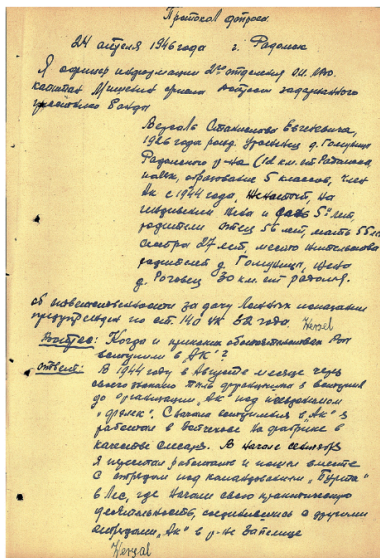 Протокол допроса
24 апреля 1946 года г. Радомск
Я офицер информации 2го отделения
капитан допросил задержанного
участника банды
Станислава Евгеневича,
1926 года рожд. д.
Радомского р-на (12 км. от Радомска
образование 5 классов, член
Ак с 1944 года, женатый, на
5 лет,
родители отец 56 лет, мать 55 лет
сестра 27 лет, место жительства
родителей д. жена
д. Роговец 30 км. от Радомск.
об ответственности за дачу ложных показаний
предупрежден по ст. 140 УК 32 года. Henzel
Вопрос: Когда и при каких обстоятельствах Вы
вступили в "АК"?
Ответ: В 1944 году в Августе месяце через
своего я вступил
до организации "АК" под псевдонимом
С начала вступления в "Ак" я
работал в на фабрике в
качестве слесаря. В начале сентября
я перестал работать и пошел вместе
с отрядом под командованием "Бурта"
в Лес, где начали свою практическую
деятельность, соединившись с другими
отрядами "Ак" в р-не
Henzel